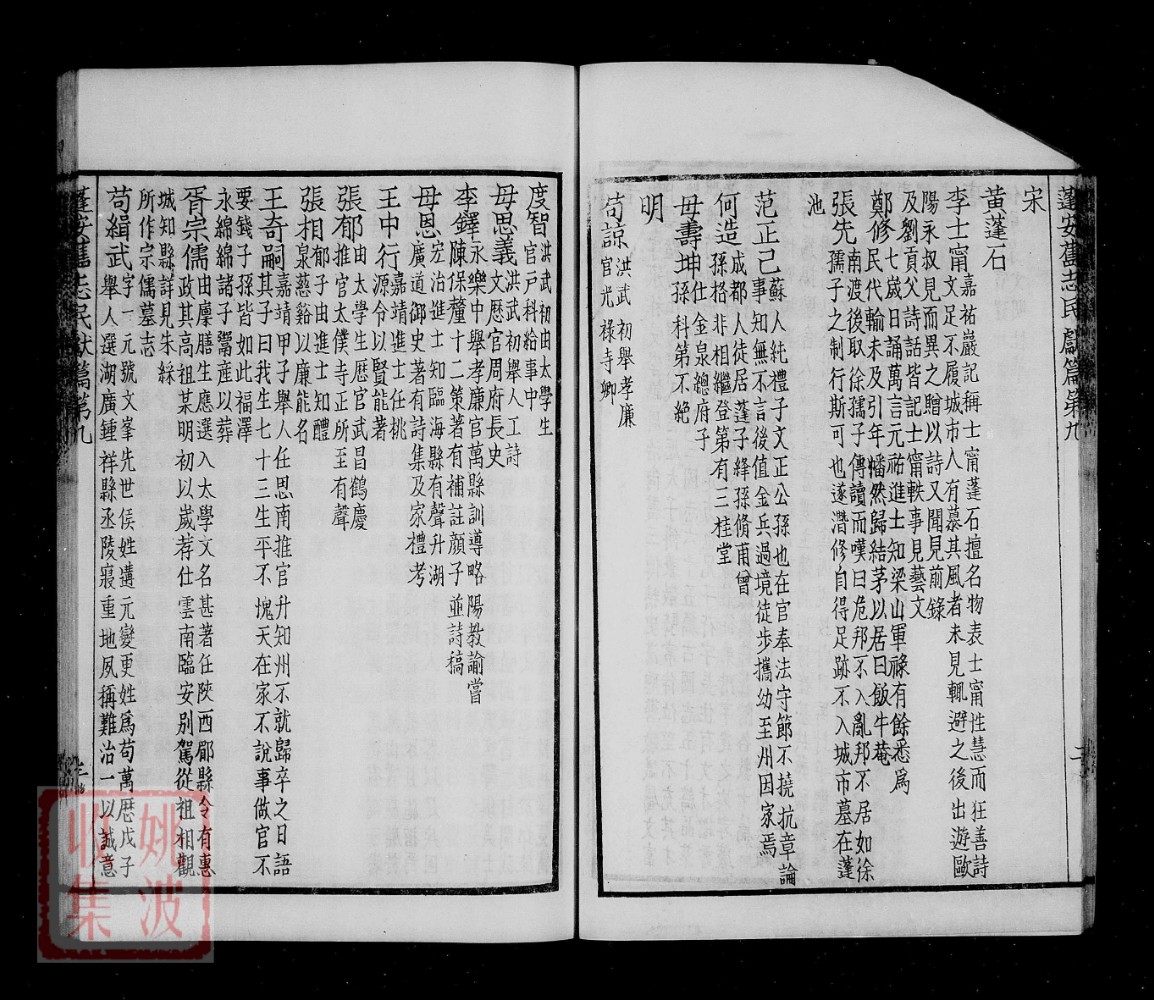 蓬安舊志民獻篇第九
宋
黃蓬石
李士甯嘉祐巖記稱士甯蓬石擅名物表士甯性慧而狂善詩
文足不履城市人有慕其風者未見輒避之後出遊歐
陽永叔見而異之贈以詩又聞見前錄
及劉貢父詩話皆記士甯軼事見藝文
鄭修七歲日誦萬言元祐進士知梁山軍祿有餘悉爲
民代輸未及引年幡然歸結茅以居曰飯牛菴
張先南渡後取徐孺子傳讀而嘆曰危邦不入亂邦不居如徐
孺子之制行斯可也遂潛修自得足跡不入城市墓在蓬
池
范正己蘇人純禮子文正公孫也在官奉法守節不撓抗章論
事知無不言後值金兵過境徒步攜幼至州因家焉
何造成都人徒居蓬子繹孫脩甫曾
孫格非相繼登第有三桂堂
毋壽坤仕金泉總府子
孫科第不絕
明
苟諒洪武初舉孝廉
官光祿寺卿
度智洪武初由太學生
官戶科給事中
毋思義洪武初舉人工詩
文歷官周府長史
李鐸永樂中舉孝廉官萬縣訓導略陽教諭嘗
陳保釐十二策著有補註顏子並詩稿
毋恩宏治進士知臨海縣有聲升湖
廣道御史著有詩集及家禮考
王中行嘉靖進士任桃
源令以賢能著
張郁由太學生歷官武昌鶴慶
推官太僕寺正所至有聲
張相郁子由進士知醴
泉慈谿以廉能名
王奇嗣嘉靖甲子舉人任思南推官升知州不就歸卒之日語
其子曰我生七十三生平不愧天在家不說事做官不
要錢子孫皆如此福澤
永綿綿諸子鬻產以葬
胥宗儒由廩膳生應選入太學文名甚著任陝西郿縣令有惠
政其高祖某明初以歲荐仕雲南臨安別駕從祖相觀
城知縣詳見朱綵
所作宗儒墓志
苟緝武字一元號文峯先世侯姓遘元變更姓爲苟萬歷戊子
舉人選湖廣鍾祥縣丞陵寢重地夙稱難治一以誠意
蓬安舊志民獻篇第九
姚波
收集